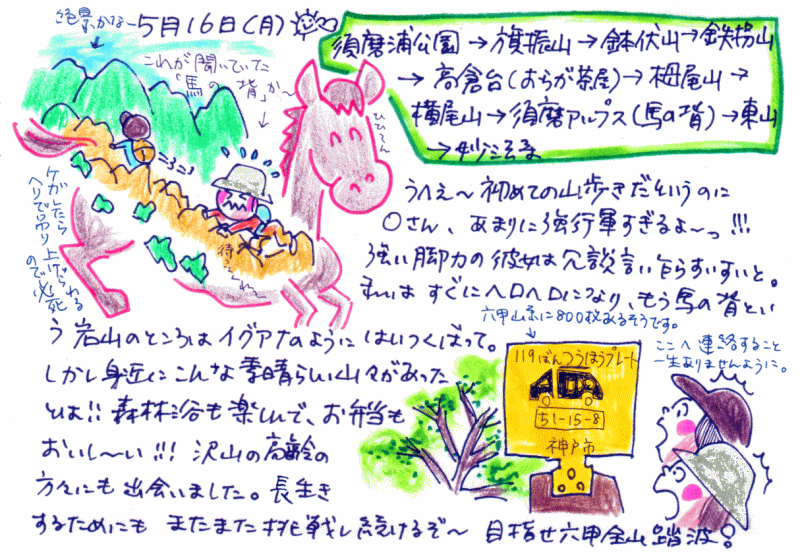 絶景かなー
5月16日(月)
須磨浦公園→旗振山→鉢伏山→鉄拐山
→高倉台(おらが茶屋)→栂尾山→
横尾山→須磨アルプス(馬の背)→東山
→妙法寺
これが聞いていた
「馬の背」か〜
ひひーん
ケガしたら
ヘリで吊り上げられる
ので必死
待ってくれ〜
うへえ〜初めての山歩きだというのに
○さん、あまりに強行軍すぎるよ〜っ!!!
強い脚力の彼女は冗談言い乍らすいすいと。
私はすぐにヘロヘロになり、もう馬の背とい
う岩山のところはイグアナのようにはいつくばって。
しかし身近にこんな素晴らしい山々があった
とは!!森林浴も楽しんで、お弁当も
おいし〜い!!!沢山の高齢の
方々にも出会いました。長生き
するためにもまたまた挑戦し続けるぞ〜目指せ六甲全山踏破!
六甲山系に800枚あるそうです。
119ばんつうほうプレート
51-15-8
神戸市
ここへ連絡すること
一生ありませんように。